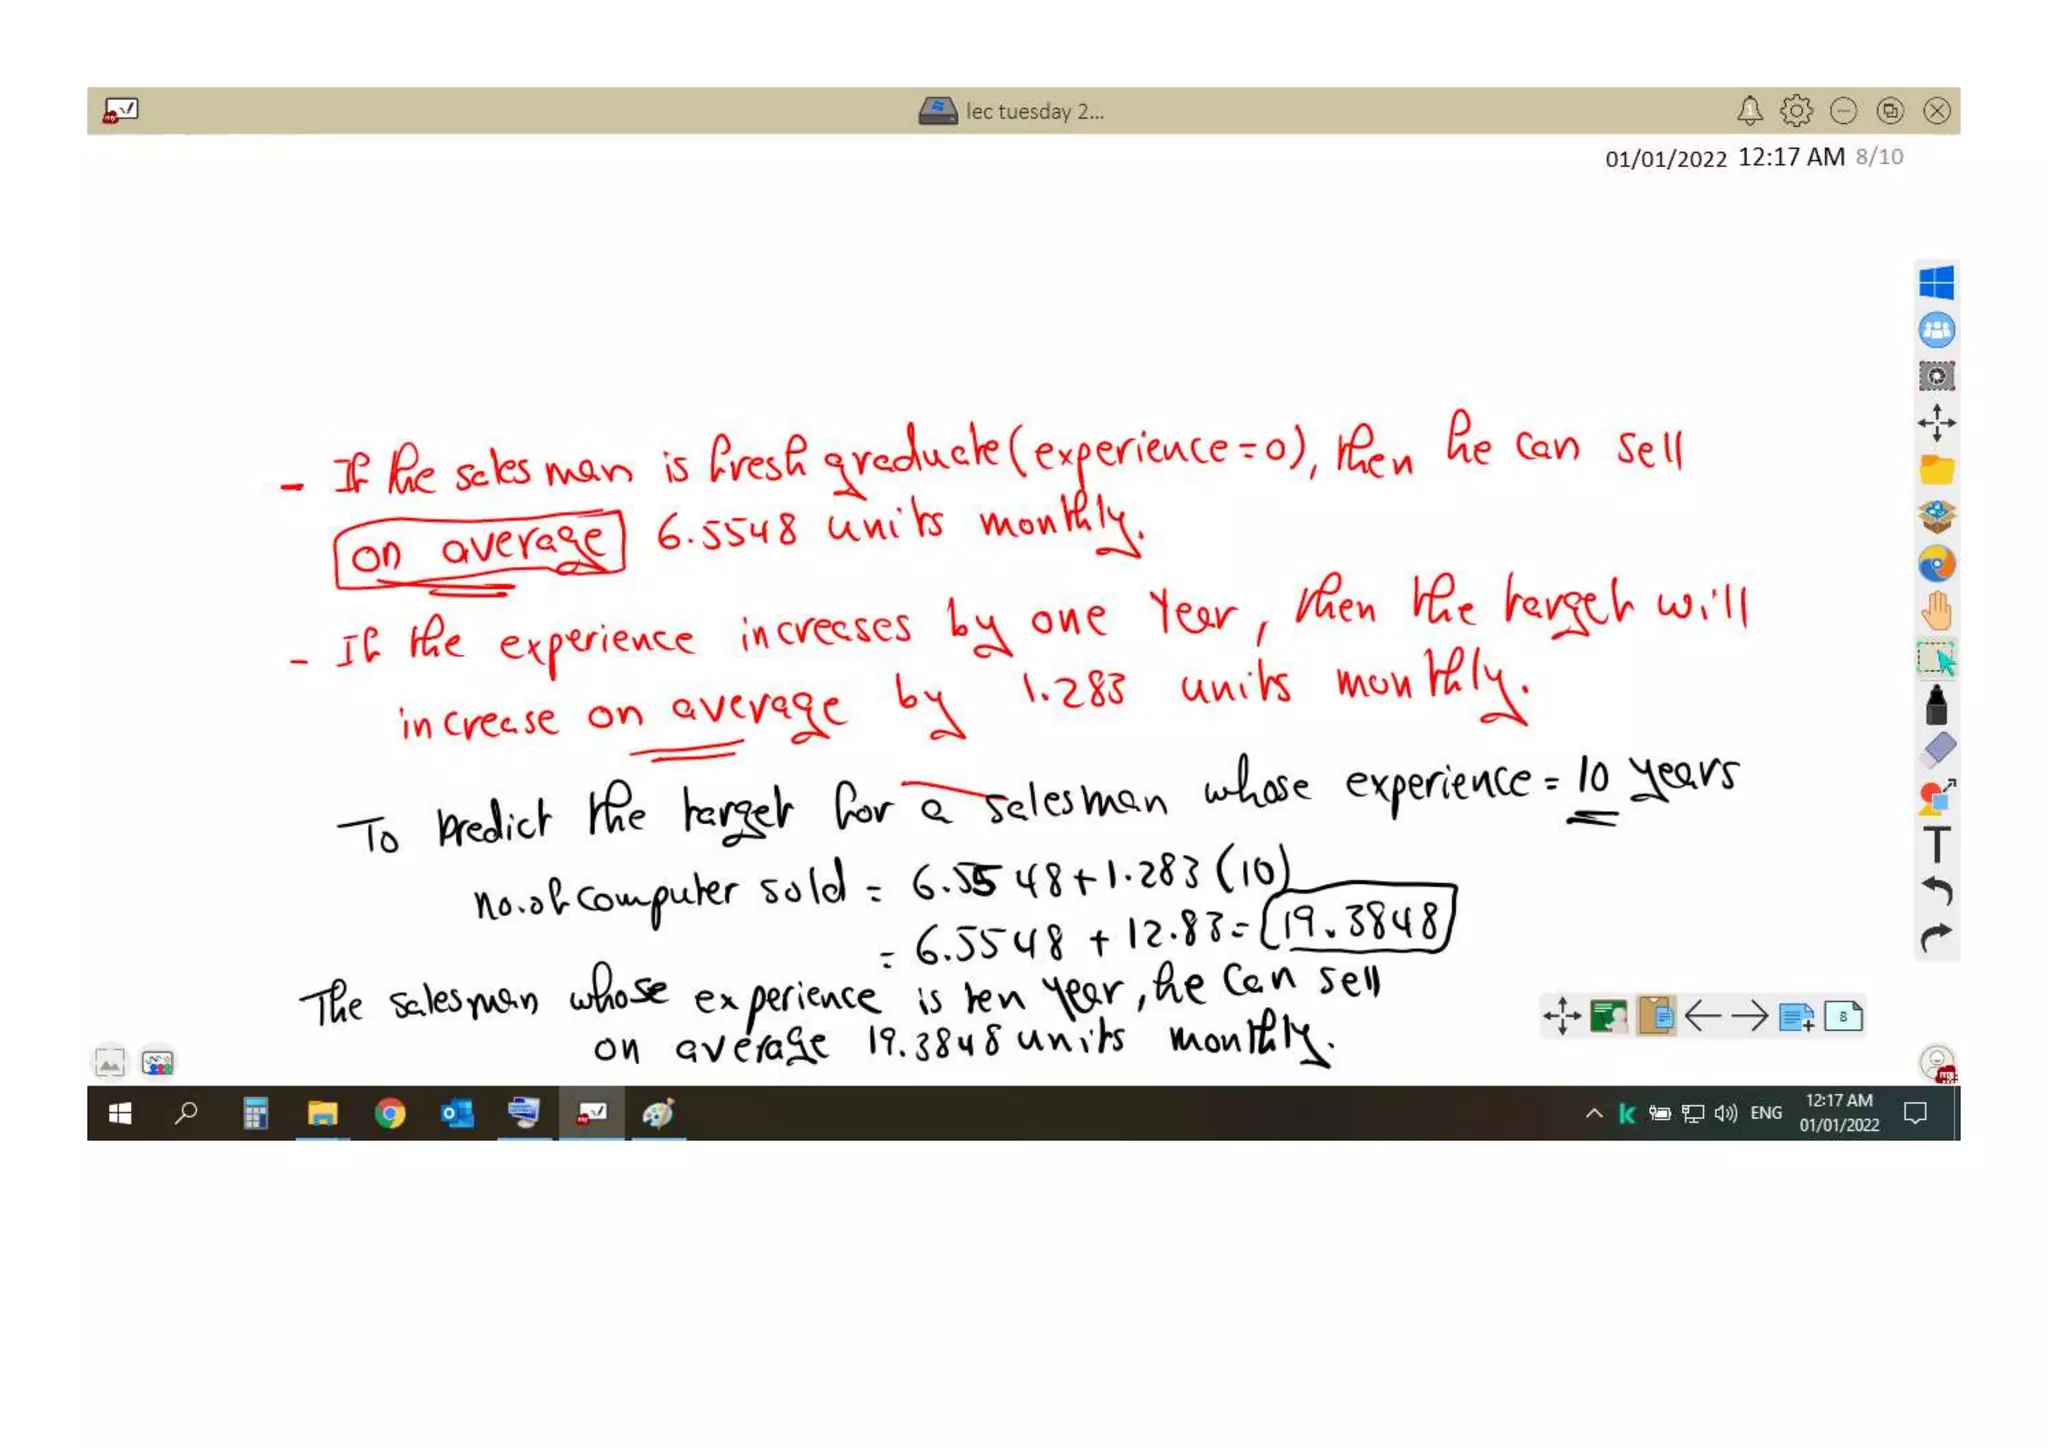 lec tuesday 2...
01/01/2022 12:17 AM 8/10
- If the salesman is fresh graduate (experience=0), then he can sell
on average 6.5548 units monthly.
- If the experience increases by one Year, then the target will
increase on average by 1.283 units monthly.
To predict the target for a salesman whose experience = 10 years
no. of computer sold = 6.5548 + 1.283 (10)
= 6.5548 + 12.83 = 19.3848
The salesman whose experience is ten Year, he can sell
on average 19.3848 units monthly.
8
ENG
12:17 AM
01/01/2022